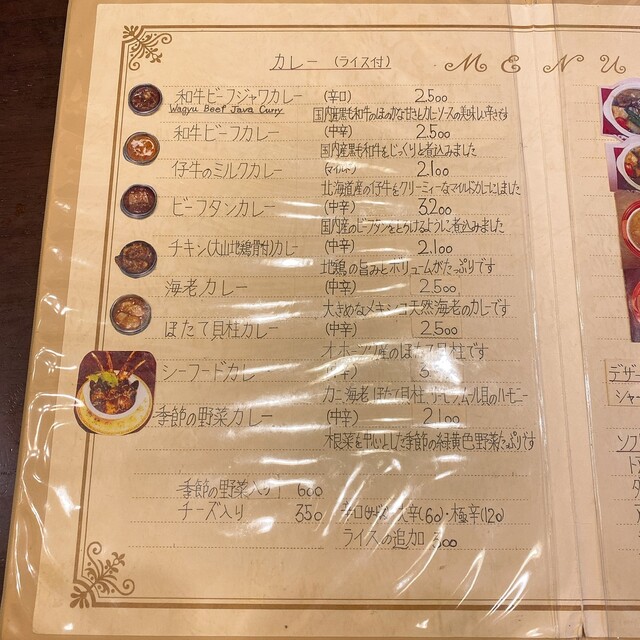 カレー (ライス付)
MENU
和牛ビーフジャワカレー (辛口) 2.500
Wagyu Beef Java Curry 国内産黒毛和牛のほのかな甘さとカレーソースの美味しい辛さです
和牛ビーフカレー (中辛) 2.500
国内産黒毛和牛をじっくりと煮込みました
仔牛のミルクカレー (マイルド) 2.100
北海道産の仔牛をクリーミィーなマイルドカレーにしました
ビーフタンカレー (中辛) 3.200
国内産のビーフタンをとろけるように煮込みました
チキン(大山地鶏骨付)カレー (中辛) 2.100
地鶏の旨みとボリュームがたっぷりです
海老カレー (中辛) 2.500
大きめなメキシコ天然海老のカレーです
ほたて貝柱カレー (中辛) 2.500
オホーツク産のほたて貝柱です
シーフードカレー
カニ 海老 ほたて貝柱 ハーモニー
季節の野菜カレー (中辛) 2.100
根菜を中心とした季節の緑黄色野菜たっぷりです
季節の野菜入り 600
チーズ入り 350 大辛(60)・極辛(120)
ライスの追加 300
デザー
シャー
ソフ